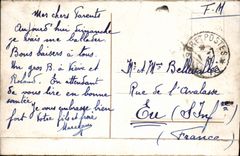 Mes chers Parents
Aujourd'hui dimanche
je vais me ballader
Bons baisers à tous
Un gros B. à
En attendant
de vous lire en bonne
santée
Je vous embrasse bien
fort Votre fils et frère
F. M
POSTES
Mr et Mme
Rue de l'Avalasse
Eu (S. Inf.)
(France)